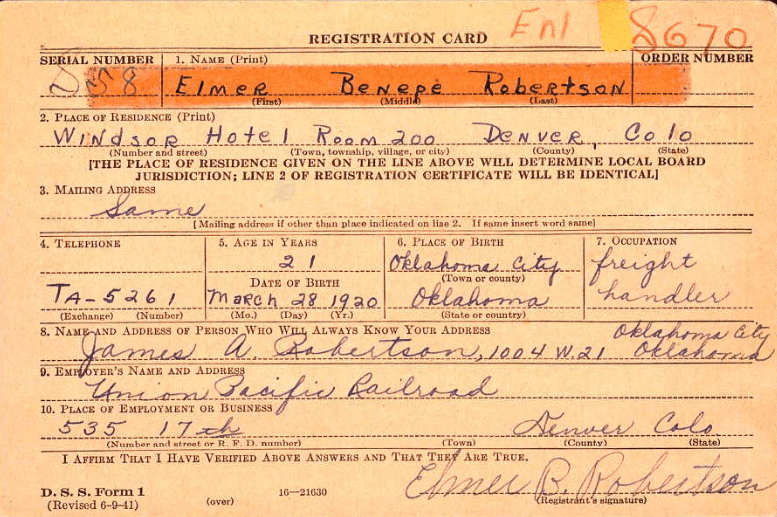 Enl 8670
REGISTRATION CARD
SERIAL NUMBER 1. NAME (Print) ORDER NUMBER
Elmer Benepe Robertson
(First) (Middle) (Last)
2. PLACE OF RESIDENCE (Print)
Windsor Hotel Room 200 Denver, Colo
(Number and street) (Town, township, village, or city) (County) (State)
[THE PLACE OF RESIDENCE GIVEN ON THE LINE ABOVE WILL DETERMINE LOCAL BOARD
JURISDICTION; LINE 2 OF REGISTRATION CERTIFICATE WILL BE IDENTICAL]
3. MAILING ADDRESS
Same
[Mailing address if other than place indicated on line 2. If same insert word same]
4. TELEPHONE 5. AGE IN YEARS 6. PLACE OF BIRTH 7. OCCUPATION
21 Oklahoma City freight
(Town or county)
DATE OF BIRTH
TA-5261 March 28 1920 Oklahoma handler
(Exchange) (Number) (Mo.) (Day) (Yr.) (State or country)
8. NAME AND ADDRESS OF PERSON WHO WILL ALWAYS KNOW YOUR ADDRESS Oklahoma City
James A. Robertson, 1004 W. 21 Oklahoma
9. EMPLOYER'S NAME AND ADDRESS
Union Pacific Railroad
10. PLACE OF EMPLOYMENT OR BUSINESS
535 17th Denver Colo
(Number and street or R. F. D. number) (Town) (County) (State)
I AFFIRM THAT I HAVE VERIFIED ABOVE ANSWERS AND THAT THEY ARE TRUE.
Elmer B. Robertson
D. S. S. Form 1 16—21630 (Registrant's signature)
(Revised 6-9-41) (over)